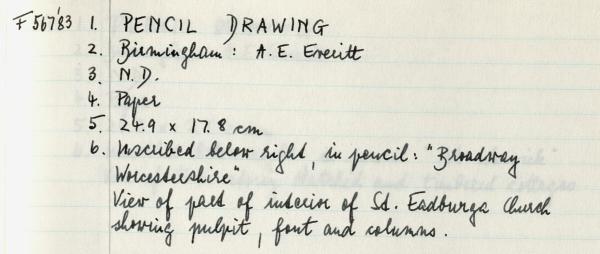 F567'83 1. PENCIL DRAWING
2. Birmingham: A. E. Everitt
3. N.D.
4. Paper
5. 24.9 x 17.8 cm
6. Inscribed below right, in pencil: "Broadway
Worcestershire"
View of part of interior of St. Eadburga Church
showing pulpit, font and columns.